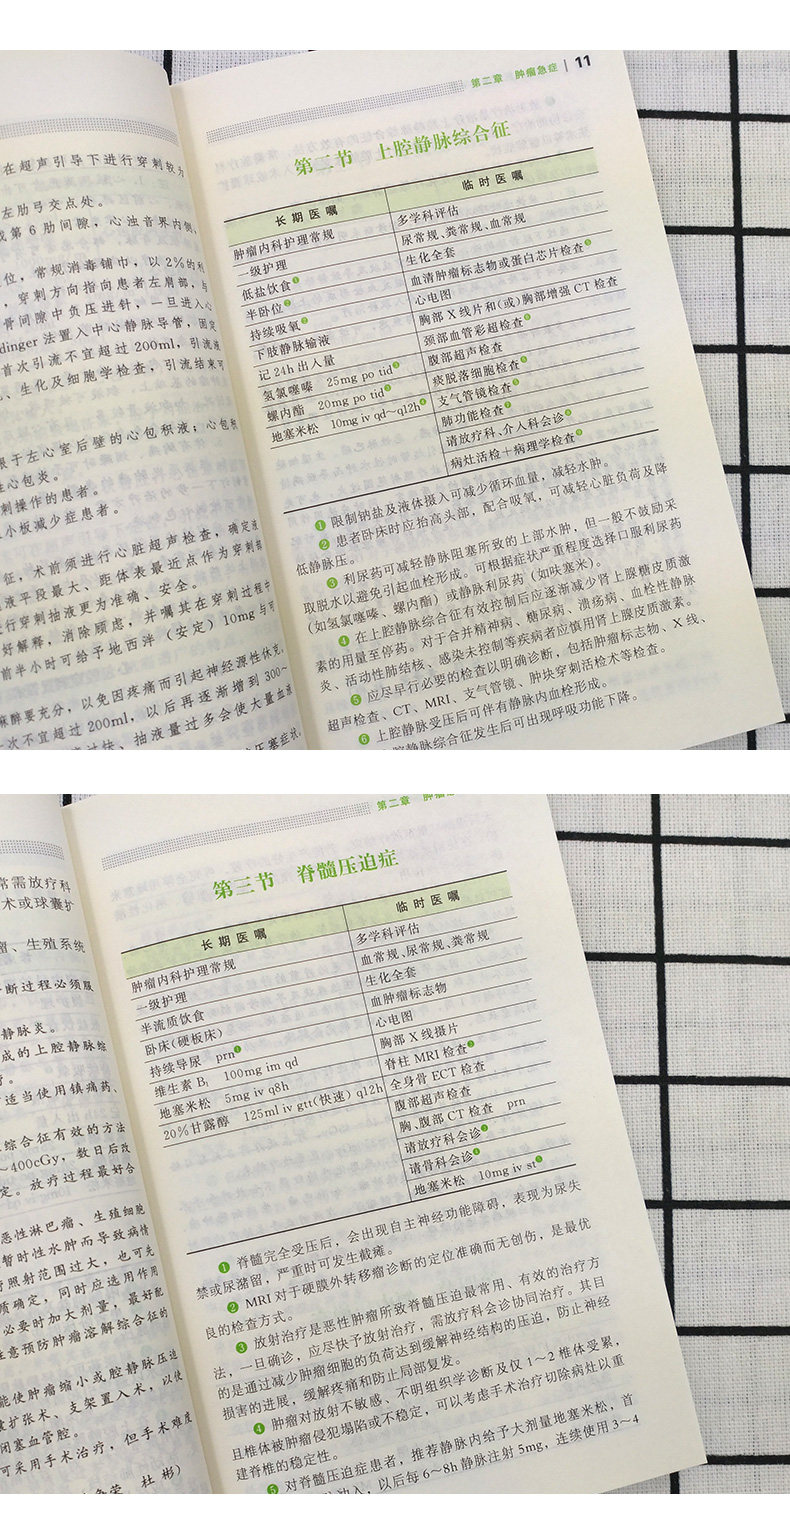 第二章 肿瘤急症 | 11
在超声引导下进行穿刺较为
左肋弓交点处。
第 6 肋间隙，心浊音界内侧、
位，常规消毒铺巾，以 2%的利
，穿刺方向指向患者左肩部，与
骨间隙中负压进针，一旦进入心
dinger 法置入中心静脉导管，固定
首次引流不宜超过 200ml，引流液
、生化及细胞学检查，引流结束可
限于左心室后壁的心包积液；心包积
性心包炎。
刺操作的患者。
小板减少症患者。
征，术前须进行心脏超声检查，确定液
液平段最大、距体表最近点作为穿刺
行穿刺抽液更为准确、安全。
好解释，消除顾虑，并嘱其在穿刺过程中
前半小时可给予地西泮（安定）10mg 与可
麻醉要充分，以免因疼痛而引起神经源性休克。
一次不宜超过 200ml，以后再逐渐增到 300～
抽液量过多会使大量血液
第二节 上腔静脉综合征
长期医嘱 临时医嘱
肿瘤内科护理常规 多学科评估
一级护理 尿常规、粪常规、血常规
低盐饮食❶ 生化全套
半卧位❷ 血清肿瘤标志物或蛋白芯片检查❺
持续吸氧❷ 心电图
下肢静脉输液 胸部 X 线片和(或)胸部增强 CT 检查
记 24h 出入量 颈部血管彩超检查❻
氢氯噻嗪 25mg po tid❸ 腹部超声检查
螺内酯 20mg po tid❸ 痰脱落细胞检查❺
地塞米松 10mg iv qd～q12h❹ 支气管镜检查❺
肺功能检查❼
请放疗科、介入科会诊❽
病灶活检＋病理学检查❾
❶ 限制钠盐及液体摄入可减少循环血量，减轻水肿。
❷ 患者卧床时应抬高头部，配合吸氧，可减轻心脏负荷及降
低静脉压。
❸ 利尿药可减轻静脉阻塞所致的上部水肿，但一般不鼓励采
取脱水以避免引起血栓形成。可根据症状严重程度选择口服利尿药
（如氢氯噻嗪、螺内酯）或静脉利尿药（如呋塞米）。
❹ 在上腔静脉综合征有效控制后应逐渐减少肾上腺糖皮质激
素的用量至停药。对于合并精神病、糖尿病、溃疡病、血栓性静脉
炎、活动性肺结核、感染未控制等疾病者应慎用肾上腺皮质激素。
❺ 应尽早行必要的检查以明确诊断，包括肿瘤标志物、X 线、
超声检查、CT、MRI、支气管镜、肿块穿刺活检术等检查。
❻ 上腔静脉受压后可伴有静脉内血栓形成。
腔静脉综合征发生后可出现呼吸功能下降。
第二章 肿瘤
常需放疗科
术或球囊扩
瘤、生殖系统
断过程必须服
静脉炎。
成的上腔静脉综
适当使用镇痛药、
综合征有效的方法
～400cGy，数日后改
定。放疗过程最好合
恶性淋巴瘤、生殖细胞
暂时性水肿而导致病情
照射范围过大，也可先
质确定，同时应选用作用
必要时加大剂量，最好配
注意预防肿瘤溶解综合征的
能使肿瘤缩小或腔静脉压迫
扩张术、支架置入术，以使
闭塞血管腔。
可采用手术治疗，但手术难度
荣 杜 彬）
第三节 脊髓压迫症
长期医嘱 临时医嘱
肿瘤内科护理常规 多学科评估
一级护理 血常规、尿常规、粪常规
半流质饮食 生化全套
卧床(硬板床) 血肿瘤标志物
持续导尿 prn❶ 心电图
维生素 B₁ 100mg im qd 胸部 X 线摄片
地塞米松 5mg iv q8h 脊柱 MRI 检查❷
20%甘露醇 125ml iv gtt(快速) q12h 全身骨 ECT 检查
腹部超声检查
胸、腹部 CT 检查 prn
请放疗科会诊❸
请骨科会诊❹
地塞米松 10mg iv st❺
❶ 脊髓完全受压后，会出现自主神经功能障碍，表现为尿失
禁或尿潴留，严重时可发生截瘫。
❷ MRI 对于硬膜外转移瘤诊断的定位准确而无创伤，是最优
良的检查方式。
❸ 放射治疗是恶性肿瘤所致脊髓压迫最常用、有效的治疗方
法，一旦确诊，应尽快予放射治疗，需放疗科会诊协同治疗。其目
的是通过减少肿瘤细胞的负荷达到缓解神经结构的压迫，防止神经
损害的进展，缓解疼痛和防止局部复发。
❹ 肿瘤对放射不敏感、不明组织学诊断及仅 1～2 椎体受累，
且椎体被肿瘤侵犯塌陷或不稳定，可以考虑手术治疗切除病灶以重
建脊椎的稳定性。
❺ 对脊髓压迫症患者，推荐静脉内给予大剂量地塞米松，首
入，以后每 6～8h 静脉注射 5mg，连续使用 3～4